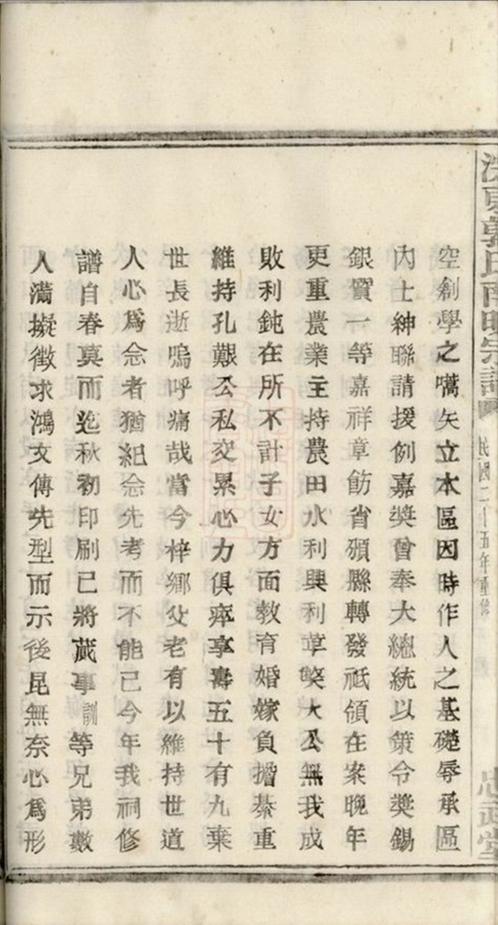 空創學之嚆矢立本區因時作人之基礎辱承區
內士紳聯請援例嘉奬曾奉大總統以策令奬錫
銀質一等嘉祥章飭省頒縣轉發祗領在案晚年
更重農業主持農田水利興利革獘大公無我成
敗利鈍在所不計子女方面教育婚嫁負擔綦重
維持孔艱公私交累心力俱瘁享壽五十有九棄
世長逝嗚呼痛哉當今梓鄉父老有以維持世道
人心爲念者猶紀念先考而不能已今年我祠修
譜自春莫而迄秋初印刷已將蕆事訓等兄弟數
人滿擬徵求鴻文傳先型而示後昆無奈心爲形
郭氏 宗譜 民國二十五年重修
忠武堂